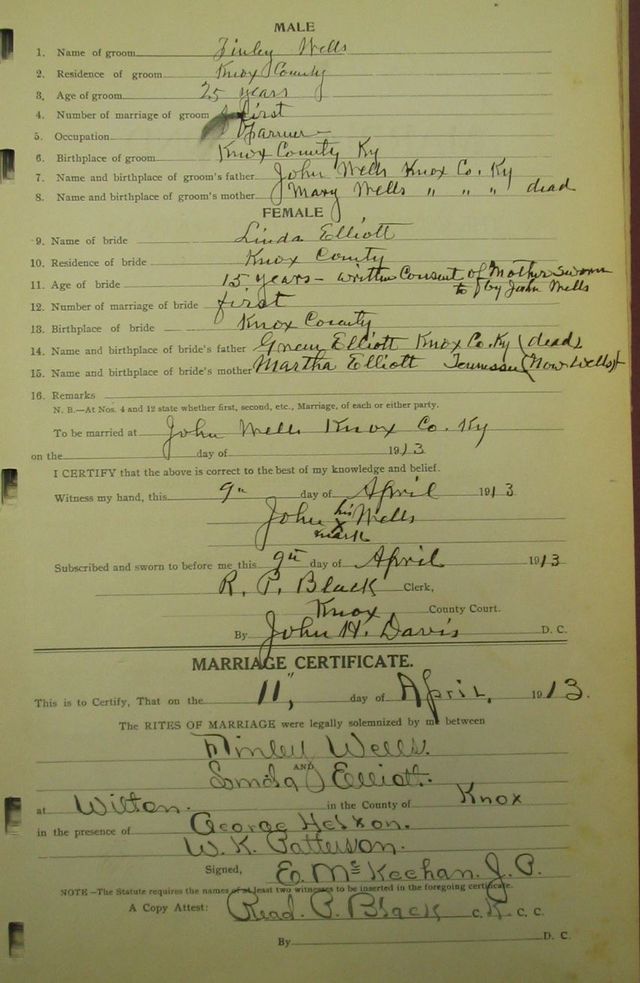 MALE
1. Name of groom Finley Wells
2. Residence of groom Knox County
3. Age of groom 25 years
4. Number of marriage of groom first
5. Occupation Farmer
6. Birthplace of groom Knox County Ky
7. Name and birthplace of groom's father John Wells Knox Co. Ky
8. Name and birthplace of groom's mother Mary Wells " " " dead
FEMALE
9. Name of bride Linda Elliott
10. Residence of bride Knox County
11. Age of bride 15 years – written Consent of Mother sworn
to by John Wells
12. Number of marriage of bride first
13. Birthplace of bride Knox County
14. Name and birthplace of bride's father Elliott Knox Co. Ky (dead)
15. Name and birthplace of bride's mother Martha Elliott Tennessee (Now Wells)
16. Remarks
N. B.—At Nos. 4 and 12 state whether first, second, etc., Marriage, of each or either party.
To be married at John Wells Knox Co. Ky
on the day of 1913
I CERTIFY that the above is correct to the best of my knowledge and belief.
Witness my hand, this 9th day of April 1913
John his x mark Wells
Subscribed and sworn to before me this 9th day of April 1913
R. P. Black Clerk,
Knox County Court.
By John H. Davis D. C.
MARRIAGE CERTIFICATE.
This is to Certify, That on the 11", day of April, 1913.
The RITES OF MARRIAGE were legally solemnized by m between
Finley Wells.
AND
Elliott.
at Wilton. in the County of Knox
in the presence of George
W. K. Patterson.
Signed, E. McKeehan J. P.
NOTE—The Statute requires the names of at least two witnesses to be inserted in the foregoing certificate.
A Copy Attest: Read. P. Black C. K. C. C.
By D. C.